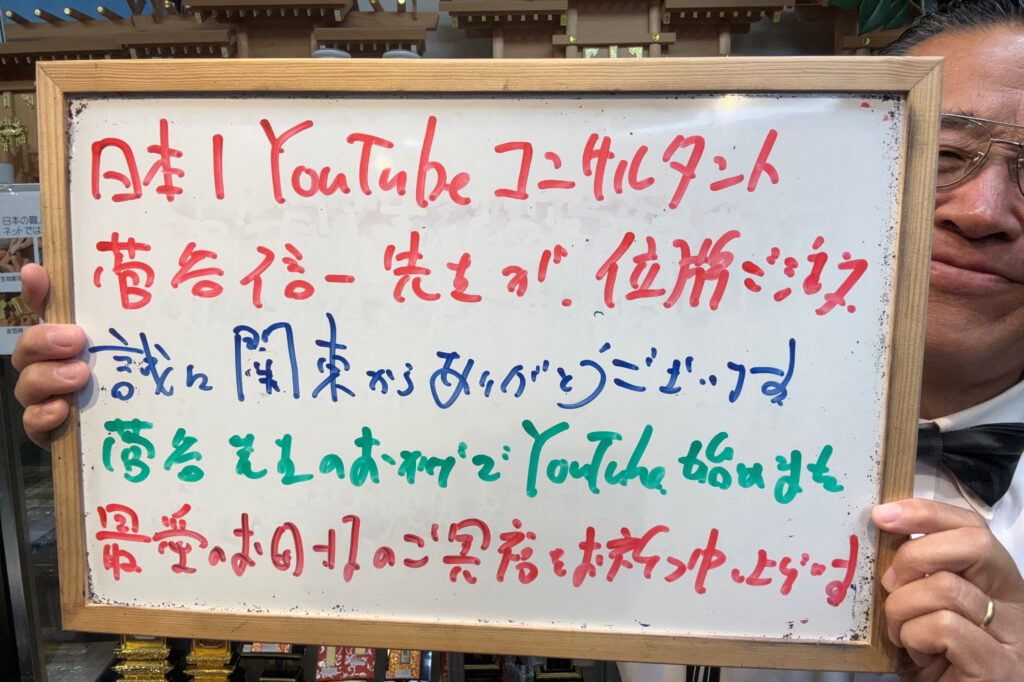 日本1 YouTubeコンサルタント
菅谷信一先生が、位牌ご注文
誠に関東からありがとうございます
菅谷先生のおかげでYouTube始めました
最愛のお母様のご冥福をお祈り申し上げます
日本の職
ネットでは